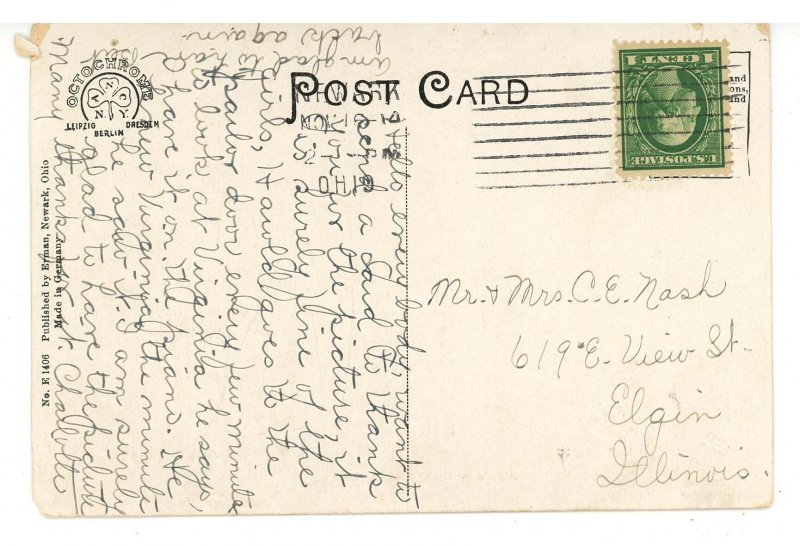 POST CARD
OCTOCHROME
ANCO
N.Y.
LEIPZIG DRESDEN
BERLIN
No. E 1406 Published by Erman, Newark, Ohio
Made in Germany
NEWARK
NOV
2
PM
OHIO
1 CENT 1
U.S. POSTAGE
and
ons,
and
Mr. & Mrs. C. E. Nash
619 E. View St.
Elgin
Illinois.
Hello everybody, want to
send a card to thank
you for the picture, it
is surely fine of the
girls, Harold goes to the
parlor door every few minutes
to look at Virginia he says,
have it on the piano. He
knew Virginia the minute
he saw it. I am surely
glad to have the picture
Many thanks for it. Charlotte
am glad to hear
back again